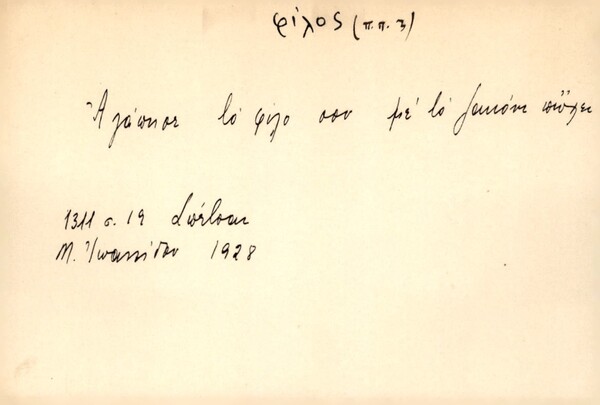 φίλος (π.π. 3)
Ἀγάπησε τὸ φίλο σου μέ τὸ ζακόνι πὤχει
1311 σ. 19 Σπέτσαι
Μ. Ἰωαννίδου 1928